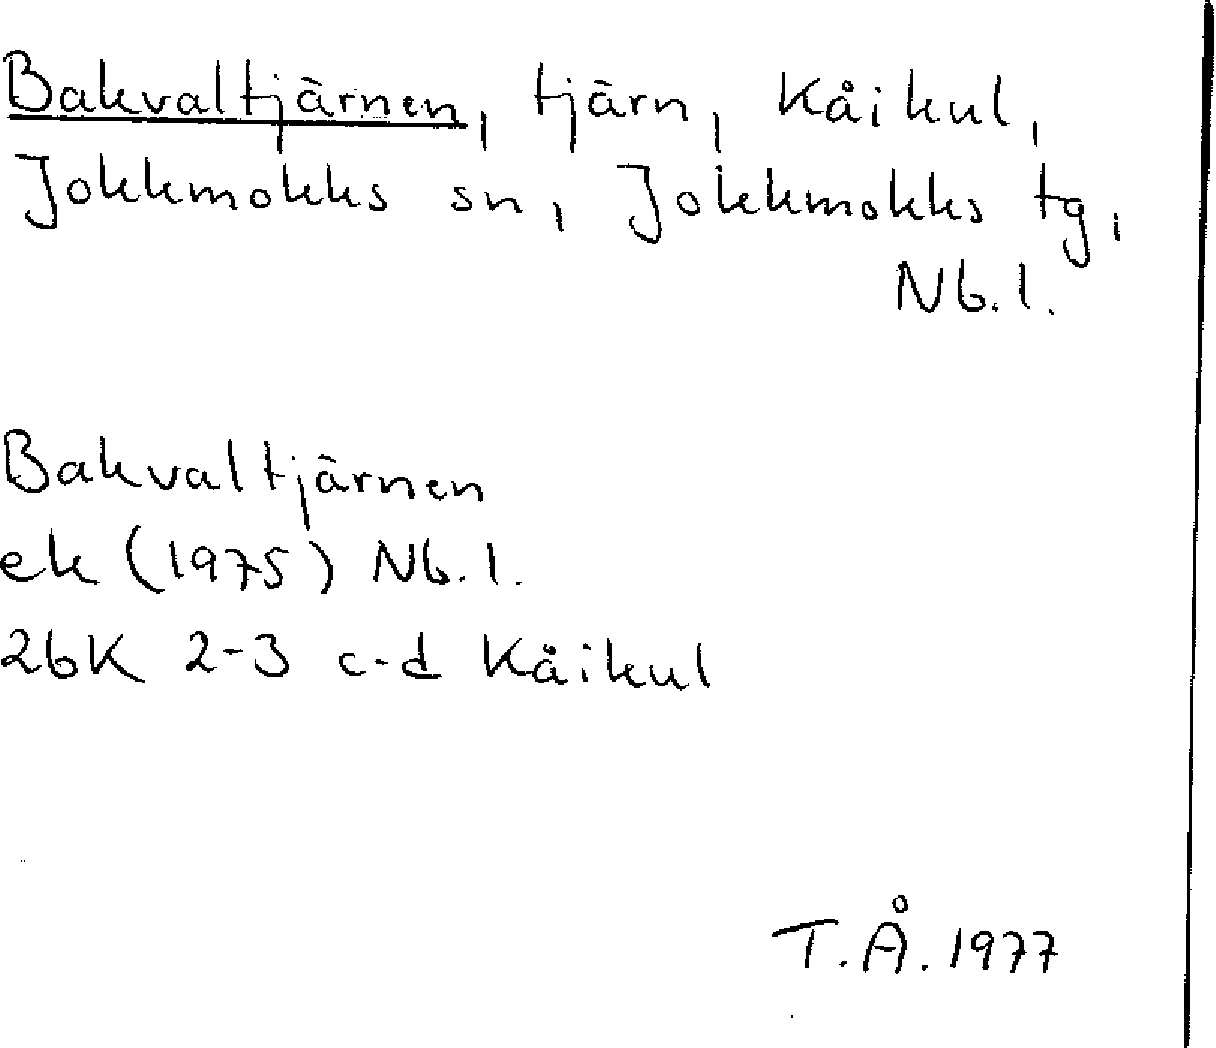 Bakvaltjärnen, tjärn, Kåikul,
Jokkmokks sn, Jokkmokks tg,
Nb.l.
Bakvaltjärnen
ek (1975) Nb.l.
26K 2-3 c-d Kåikul
T.Å. 1977